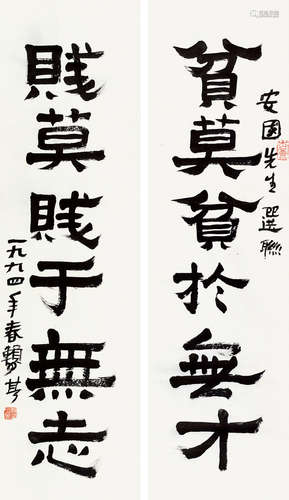 安國先生選聯
貧莫貧於無才
賤莫賤于無志
一九九四年春賴少其